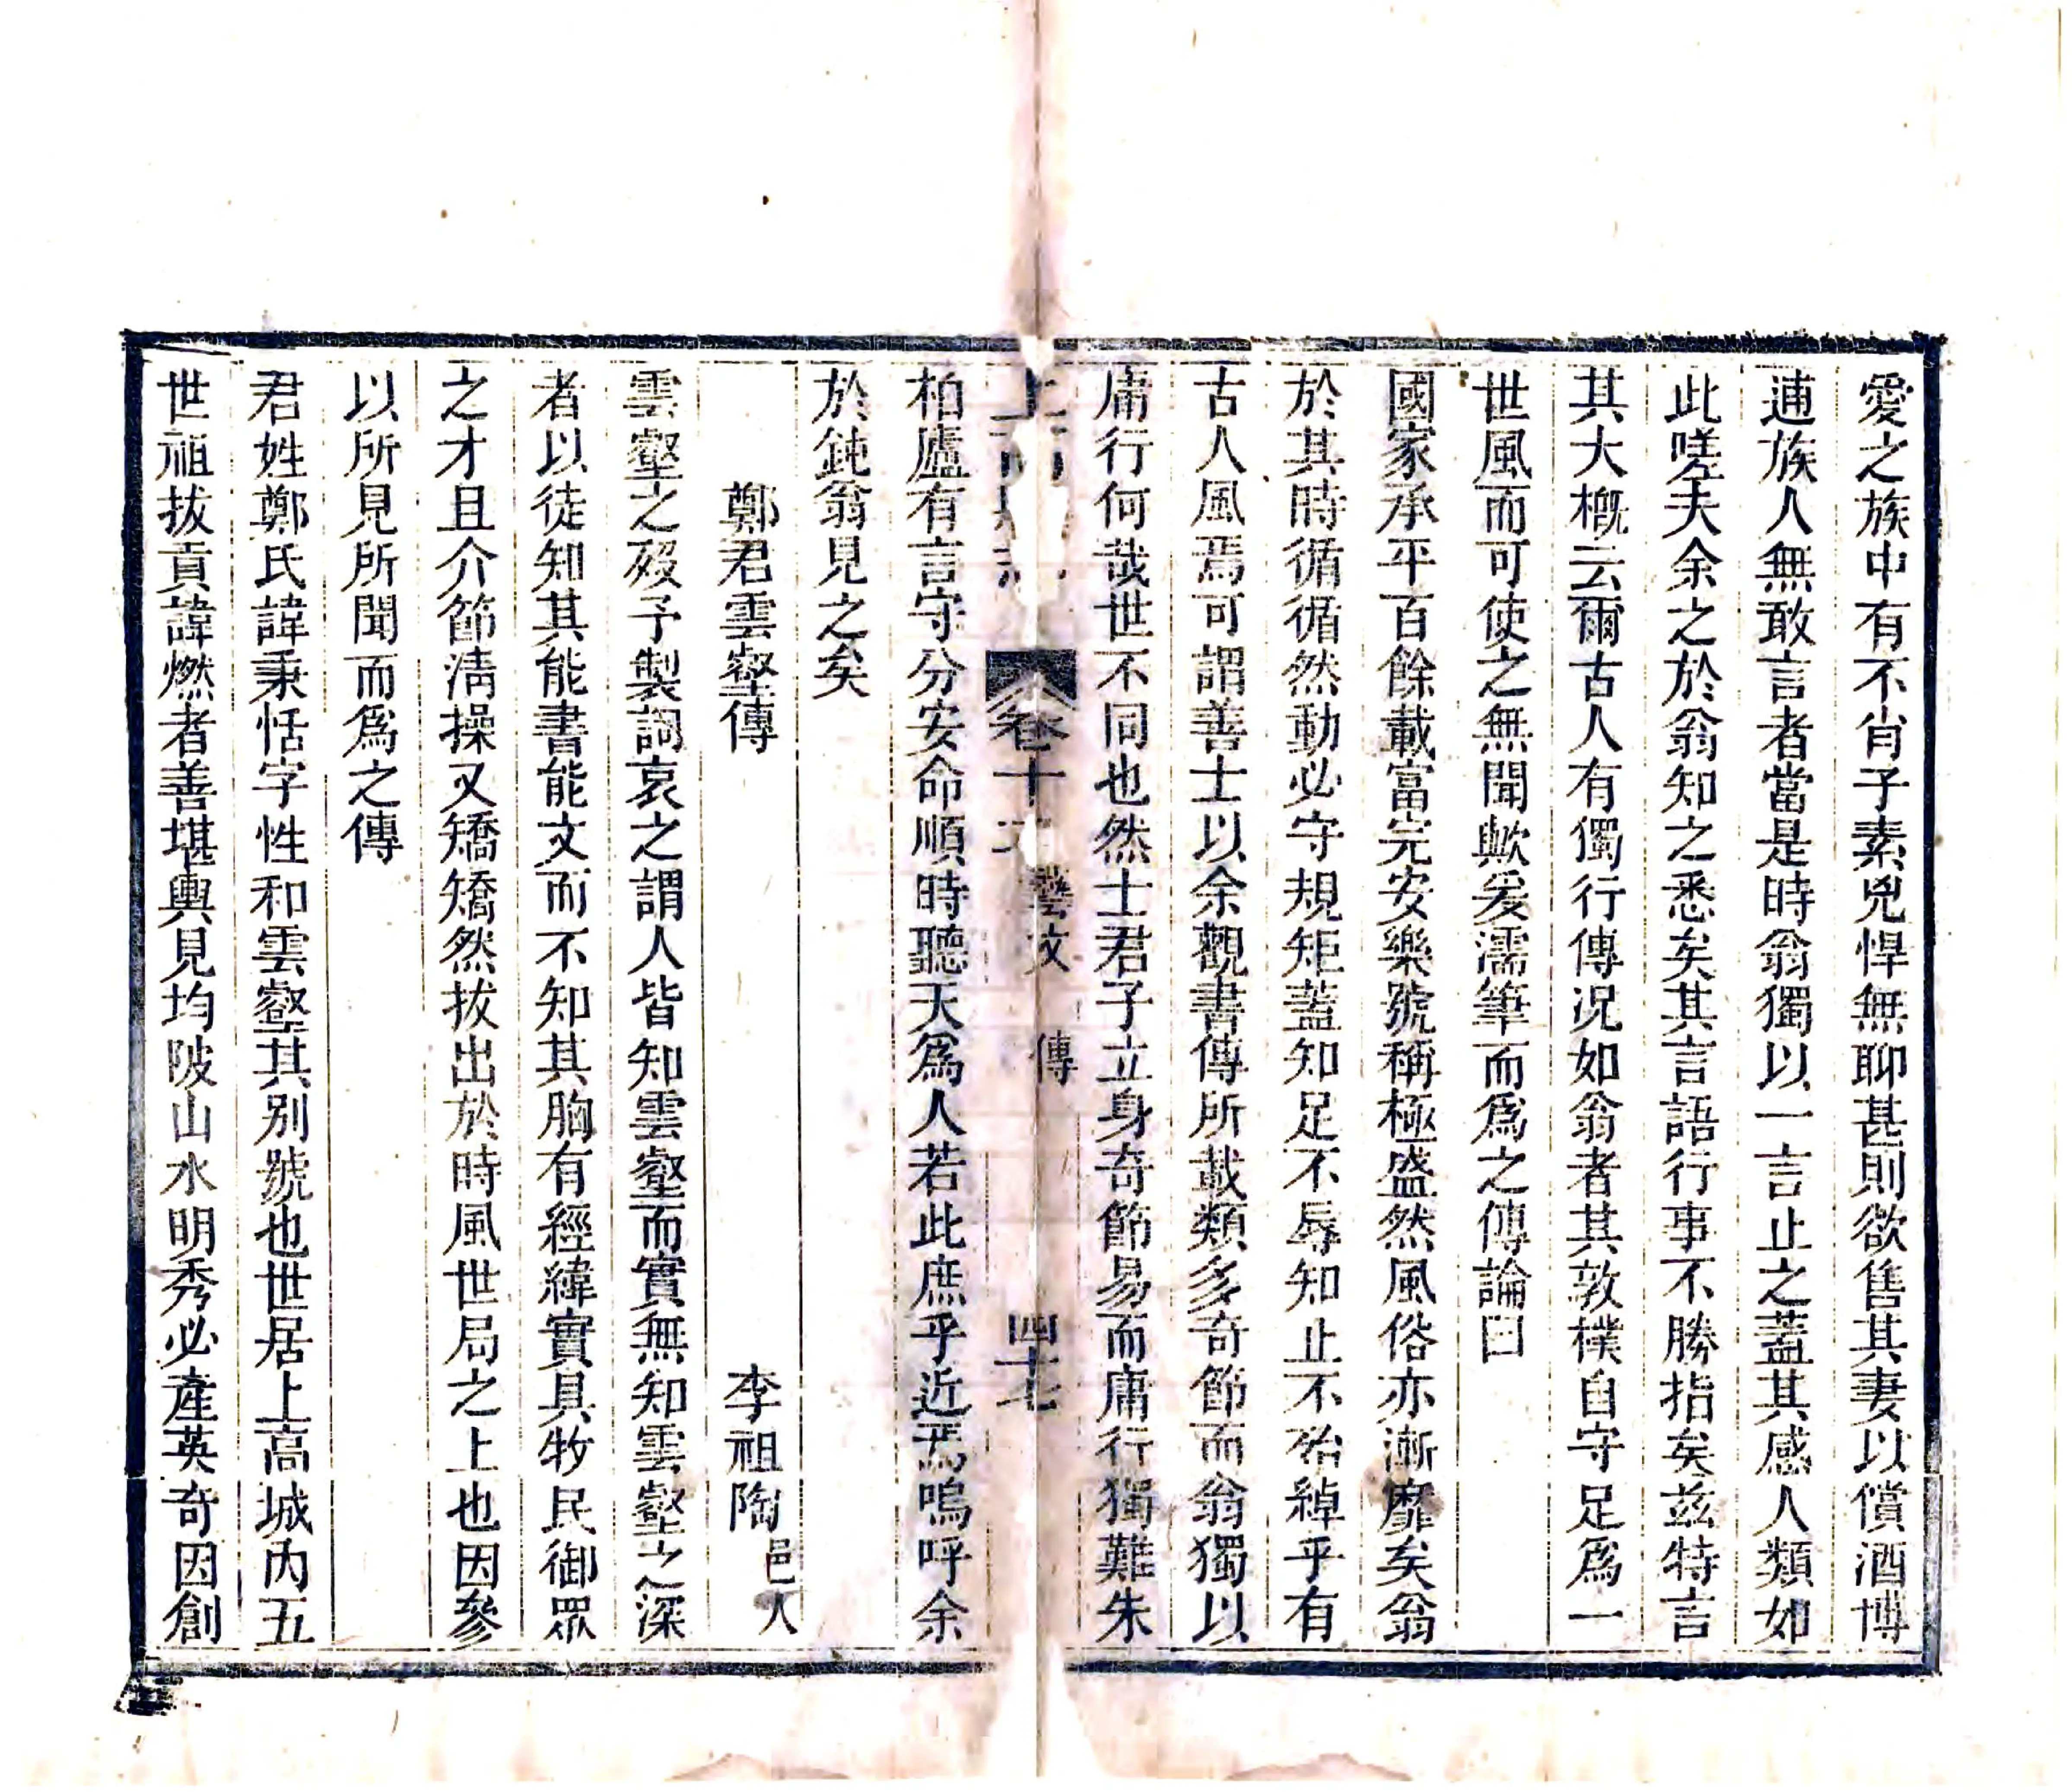 愛之族中有不肖子素兇悍無聊甚則欲售其妻以償酒博
逋族人無敢言者當是時翁獨以一言止之蓋其感人類如
此嗟夫余之於翁知之悉矣其言語行事不勝指矣茲特言
其大概云爾古人有獨行傳况如翁者其敦樸自守足爲一
世風而可使之無聞歟爰濡筆而爲之傳論曰
國家承平百餘載富完安樂號稱極盛然風俗亦漸靡矣翁
於其時循循然動必守規矩蓋知足不辱知止不殆綽乎有
古人風焉可謂善士以余觀書傳所載類多奇節而翁獨以
庸行何哉世不同也然士君子立身奇節易而庸行獨難朱
柏廬有言守分安命順時聽天爲人若此庶乎近焉嗚呼余
於鈍翁見之矣
鄭君雲壑傳　李祖陶邑人
雲壑之歿予製詞哀之謂人皆知雲壑而實無知雲壑之深
者以徒知其能書能文而不知其胸有經緯實具牧民御眾
之才且介節淸操又矯矯然拔出於時風世局之上也因參
以所見所聞而爲之傳
君姓鄭氏諱秉恬字性和雲壑其別號也世居上高城內五
世祖拔貢諱燃者善堪輿見均陂山水明秀必產英奇因創
上 卷十 藝文 傳 四十七